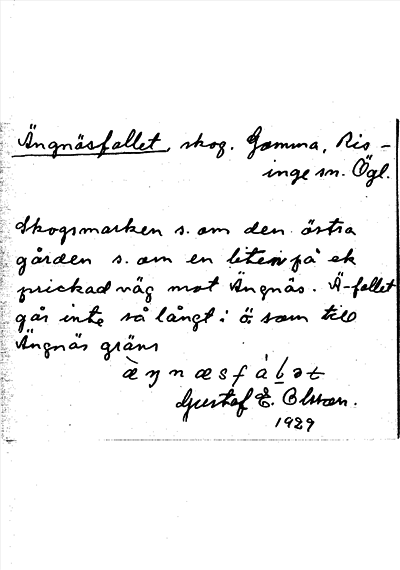 Ängnäsfallet, skog. Gamma, Ris-
inge sn. Ögl.
Skogsmarken s. om den östra
gården s. om en liten på ek
prickad väg mot Ängnäs. Ä-fallet
går inte så långt i ö som till
Ängnäs gräns
Gustaf E. Olsson.
1929